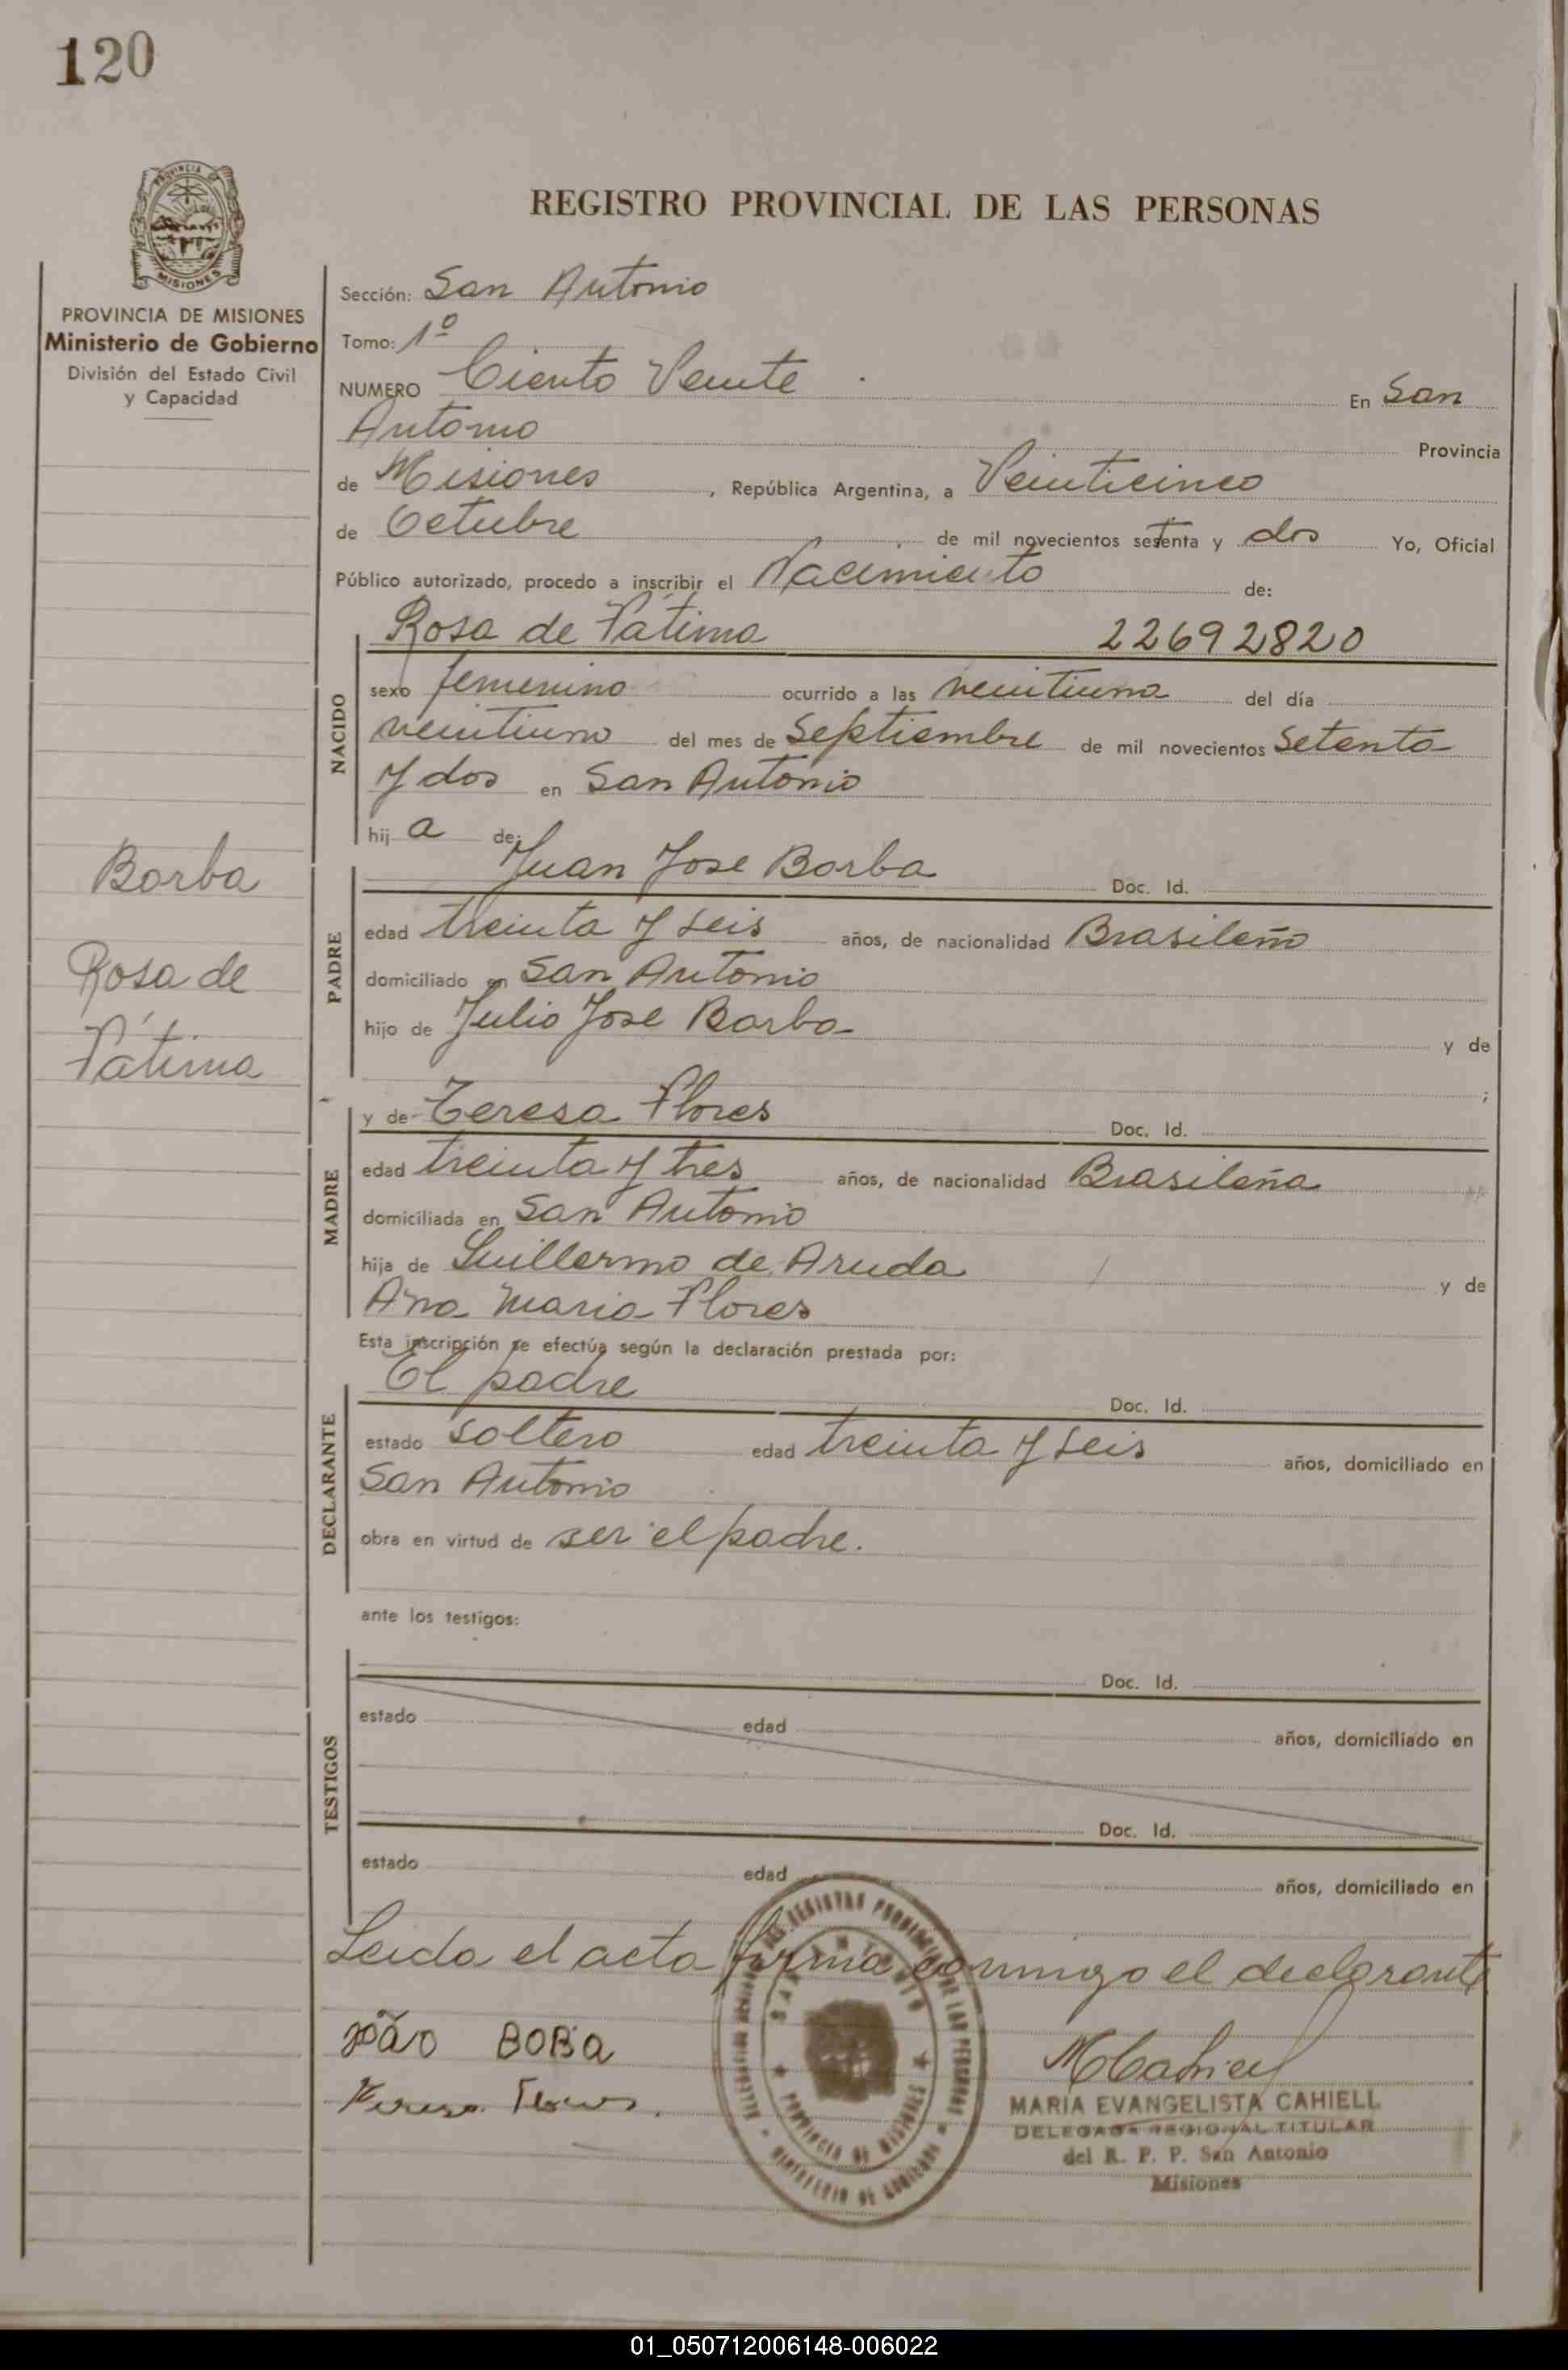 120
PROVINCIA DE MISIONES
PROVINCIA DE MISIONES
Ministerio de Gobierno
División del Estado Civil
y Capacidad
REGISTRO PROVINCIAL DE LAS PERSONAS
Sección: San Antonio
Tomo: 1º
NUMERO Ciento Veinte En San
Antonio Provincia
de Misiones, República Argentina, a Veinticinco
de Octubre de mil novecientos setenta y dos Yo, Oficial
Público autorizado, procedo a inscribir el Nacimiento de:
Rosa de Fátima 22692820
NACIDO
sexo femenino ocurrido a las veintiuna del día
veintiuno del mes de Septiembre de mil novecientos Setenta
y dos en San Antonio
hij a de:
Borba
Rosa de
Fátima
Juan Jose Borba Doc. Id.
PADRE
edad treinta y seis años, de nacionalidad Brasileño
domiciliado en San Antonio
hijo de Julio Jose Borba y de
;
y de Teresa Flores Doc. Id.
MADRE
edad treinta y tres años, de nacionalidad Brasileña
domiciliada en San Antonio
hija de Guillermo de Aruda y de
Ana Maria Flores
Esta inscripción se efectúa según la declaración prestada por:
El padre Doc. Id.
DECLARANTE
estado soltero edad treinta y seis años, domiciliado en
San Antonio
obra en virtud de ser el padre.
ante los testigos:
Doc. Id.
TESTIGOS
estado edad años, domiciliado en
Doc. Id.
estado edad años, domiciliado en
Leida el acta firma conmigo el declarante
João BOBA
Teresa Flores.
MCahiell
MARIA EVANGELISTA CAHIELL
DELEGADA REGIONAL TITULAR
del R. P. P. San Antonio
Misiones
REGISTRO PROVINCIAL DE LAS PERSONAS
SAN ANTONIO
PROVINCIA DE MISIONES
MINISTERIO DE GOBIERNO
01_050712006148-006022